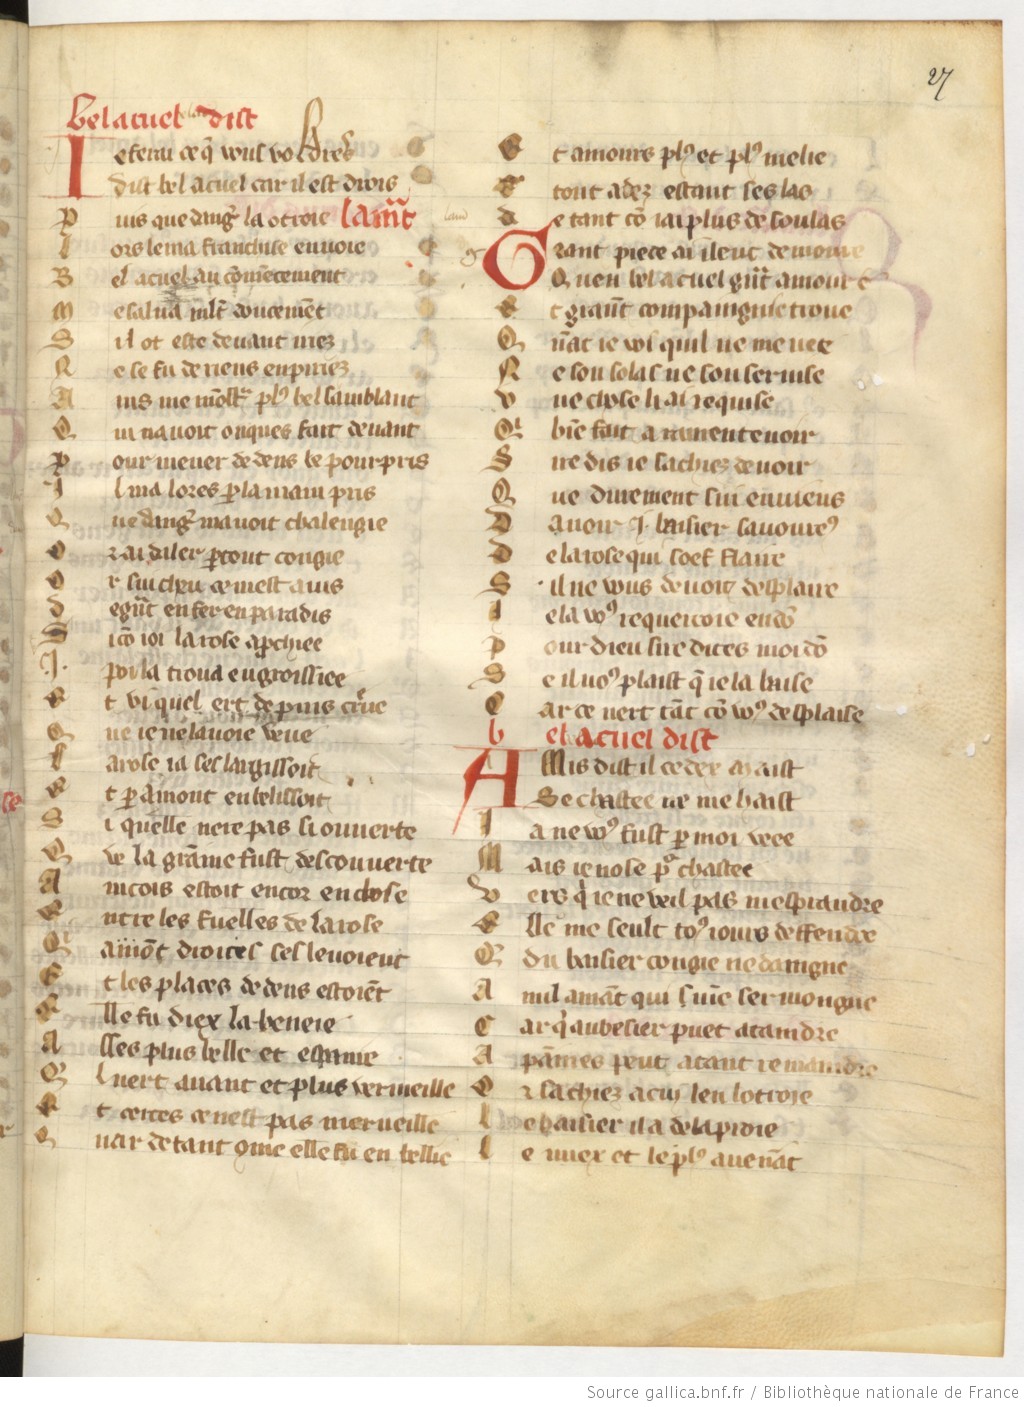 27
Bel acuel dist
Ie ferai ce q̃ vous voldres
Dist bel acuel car il est drois
Puis que dang̃ la otroie lam̃t
Lors le ma franchise envoie
Bel acuel au com̃ecement
Me salua ml̃t doucemẽt
Sil ot este devant iriez
Ne se fu de riens enpiriez
Ains me mõstͬ plꝰ bel samblant
Qui navoit onques fait devant
Pour mener dedens le pourpris
Il ma lores ꝑ la main pris
Que dang̃ mavoit chalengie
Or ai daler ꝑtout congie
Or sui cheu ce mest avis
De gñt enfer en paradis
Sicõ ioi la rose apchiee
I. poi la trovai engroissiee
Et vi quel ert de puis
Que ie ne lavoie veue
La rose la ses largissoit
Et ꝑ amont enbelissoit
Si quelle nere pas si ouverte
Que la graine fust descouverte
Ancois estoit encor enclose
Entre les fuelles de la rose
Qui amõt droites ses levoient
Et les places dedens estoiẽt
Elle fu diex la beneie
Asses plus belle et espanie
Quert avant et plus vermeille
Et certes ce nest pas merveille
Quar de tant com̃e elle fu en bellie
Et amours plꝰ et plꝰ me lie
Et tout adez estant ses las
De tant cõ iai plus de soulas
Grant piece ai ileuc demore
Quen bel acuel gñt amour e
Et grant compaingnie trove
Quãt ie vi quil ne me vee
Ne son solas ne son servise
Une chose li ai requise
Qui bien fait a ramentevoir
Sire dis ie sachiez de voir
Que durement sui envieus
Davoir .I. baisier savoureꝰ
De la rose qui soef flaire
Sil ne vous devoit desplaire
Ie la vꝰ requerroie
Pour dieu sire dites moi
Se il voꝰ plaist q̃ ie la baise
Car ce nert tãt cõ vꝰ desplaise
Bel acuel dist
Amis dist il ce dex maist
Se chastee ne me haist
Ia ne vꝰ fust ꝑ moi veee
Mais ie nose pͦ chastee
Vers qi ie ne veil pas mesprandre
Elle me seult toꝰ iours deffendre
Q du baisier congie ne daingne
A nul amãt qui sermongne
Car qi au besier puet ataindre
A painnes peut atant remaindre
Or sachiez a cui len lotroie
Le baisier il a de la proie
Le miex et le plꝰ avenãt